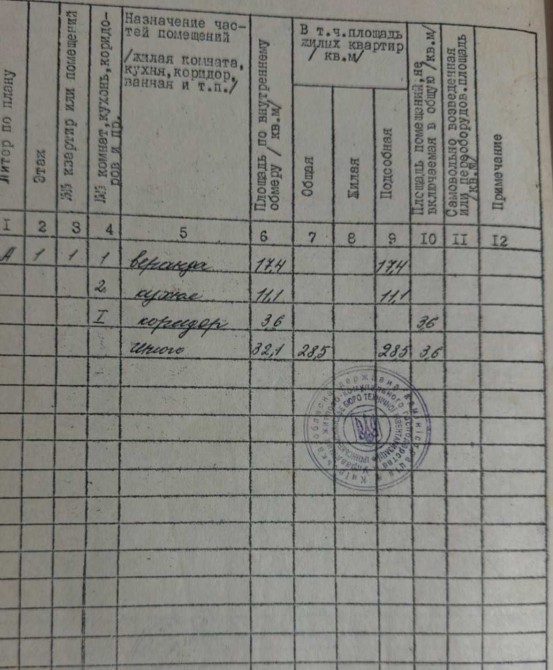 Литер по плану
Этаж
№№ квартир или помещений
№№ комнат, кухонь, коридо-
ров и пр.
Назначение час-
тей помещений
/жилая комната,
кухня, коридор,
ванная и т.п./
Площадь по внутреннему
обмеру / кв.м/
В т.ч.площадь
жилых квартир
/ кв.м/
Общая
Жилая
Подсобная
Площадь помещений, не
включаемая в общую /кв.м/
Самовольно возведенная
или переоборудов. площадь
/кв.м/
Примечание
I 2 3 4 5 6 7 8 9 10 II 12
А 1 1 1 веранда 17,4 17,4
2 кухня 11,1 11,1
I коридор 3,6 3,6
Итого 32,1 28,5 28,5 3,6